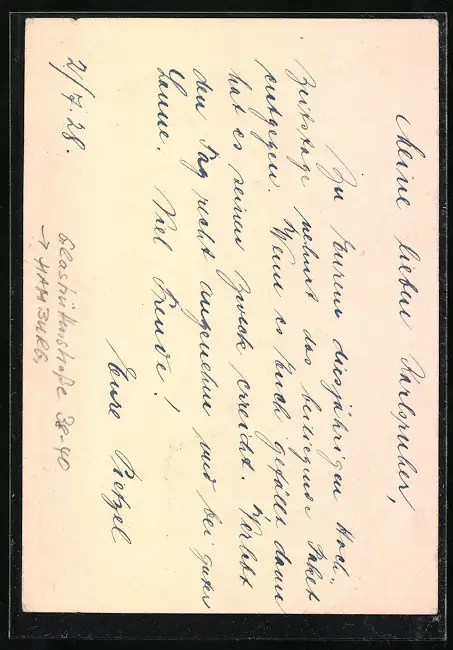 Meine lieben Karlsruher,
Zu Eurem diesjährigen Hoch-
zeitstage nehmt das beiliegende Paket
entgegen. Wenn es Euch gefällt dann
hat es seinen Zweck erreicht. Verlebt
den Tag recht angenehm und bei guter
Laune. Viel Freude!
Eure Pietzel
2/7.28.
Glashüttenstraße 38-40
→ HAMBURG